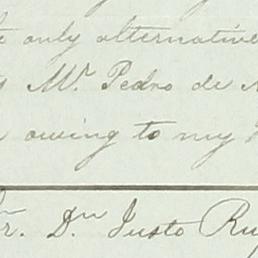 only alternative
Mr. Pedro de
owing to my
Dn Justo